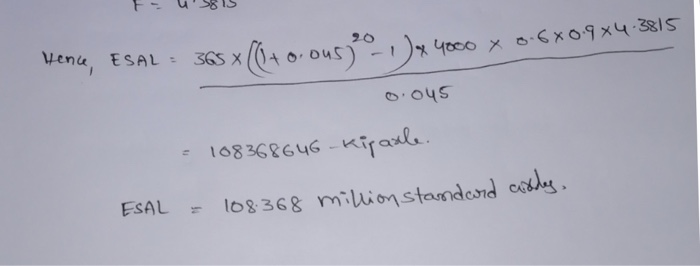 F = 4.3815
Hence, ESAL = 365 × ((1+0.045)^20 - 1) × 4000 × 0.6 × 0.9 × 4.3815
0.045
= 108368646 - Kip axle.
ESAL = 108.368 million standard axles.